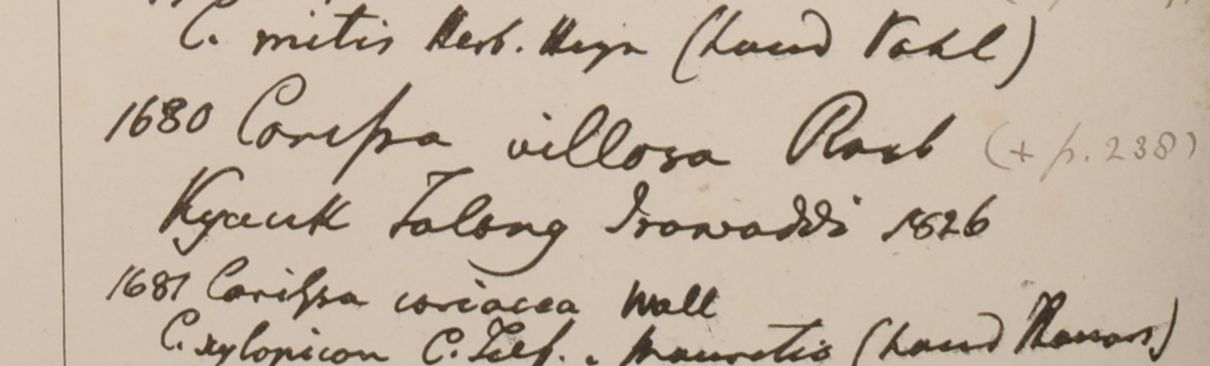 C. mitis Herb. Heyn (haud Vahl)
1680 Carissa villosa Roxb (+ p. 238)
Kyauk Talong Irawaddi 1826
1681 Carissa coriacea Wall
C. xylopicron C. Telf. Mauritis (haud Thouars)